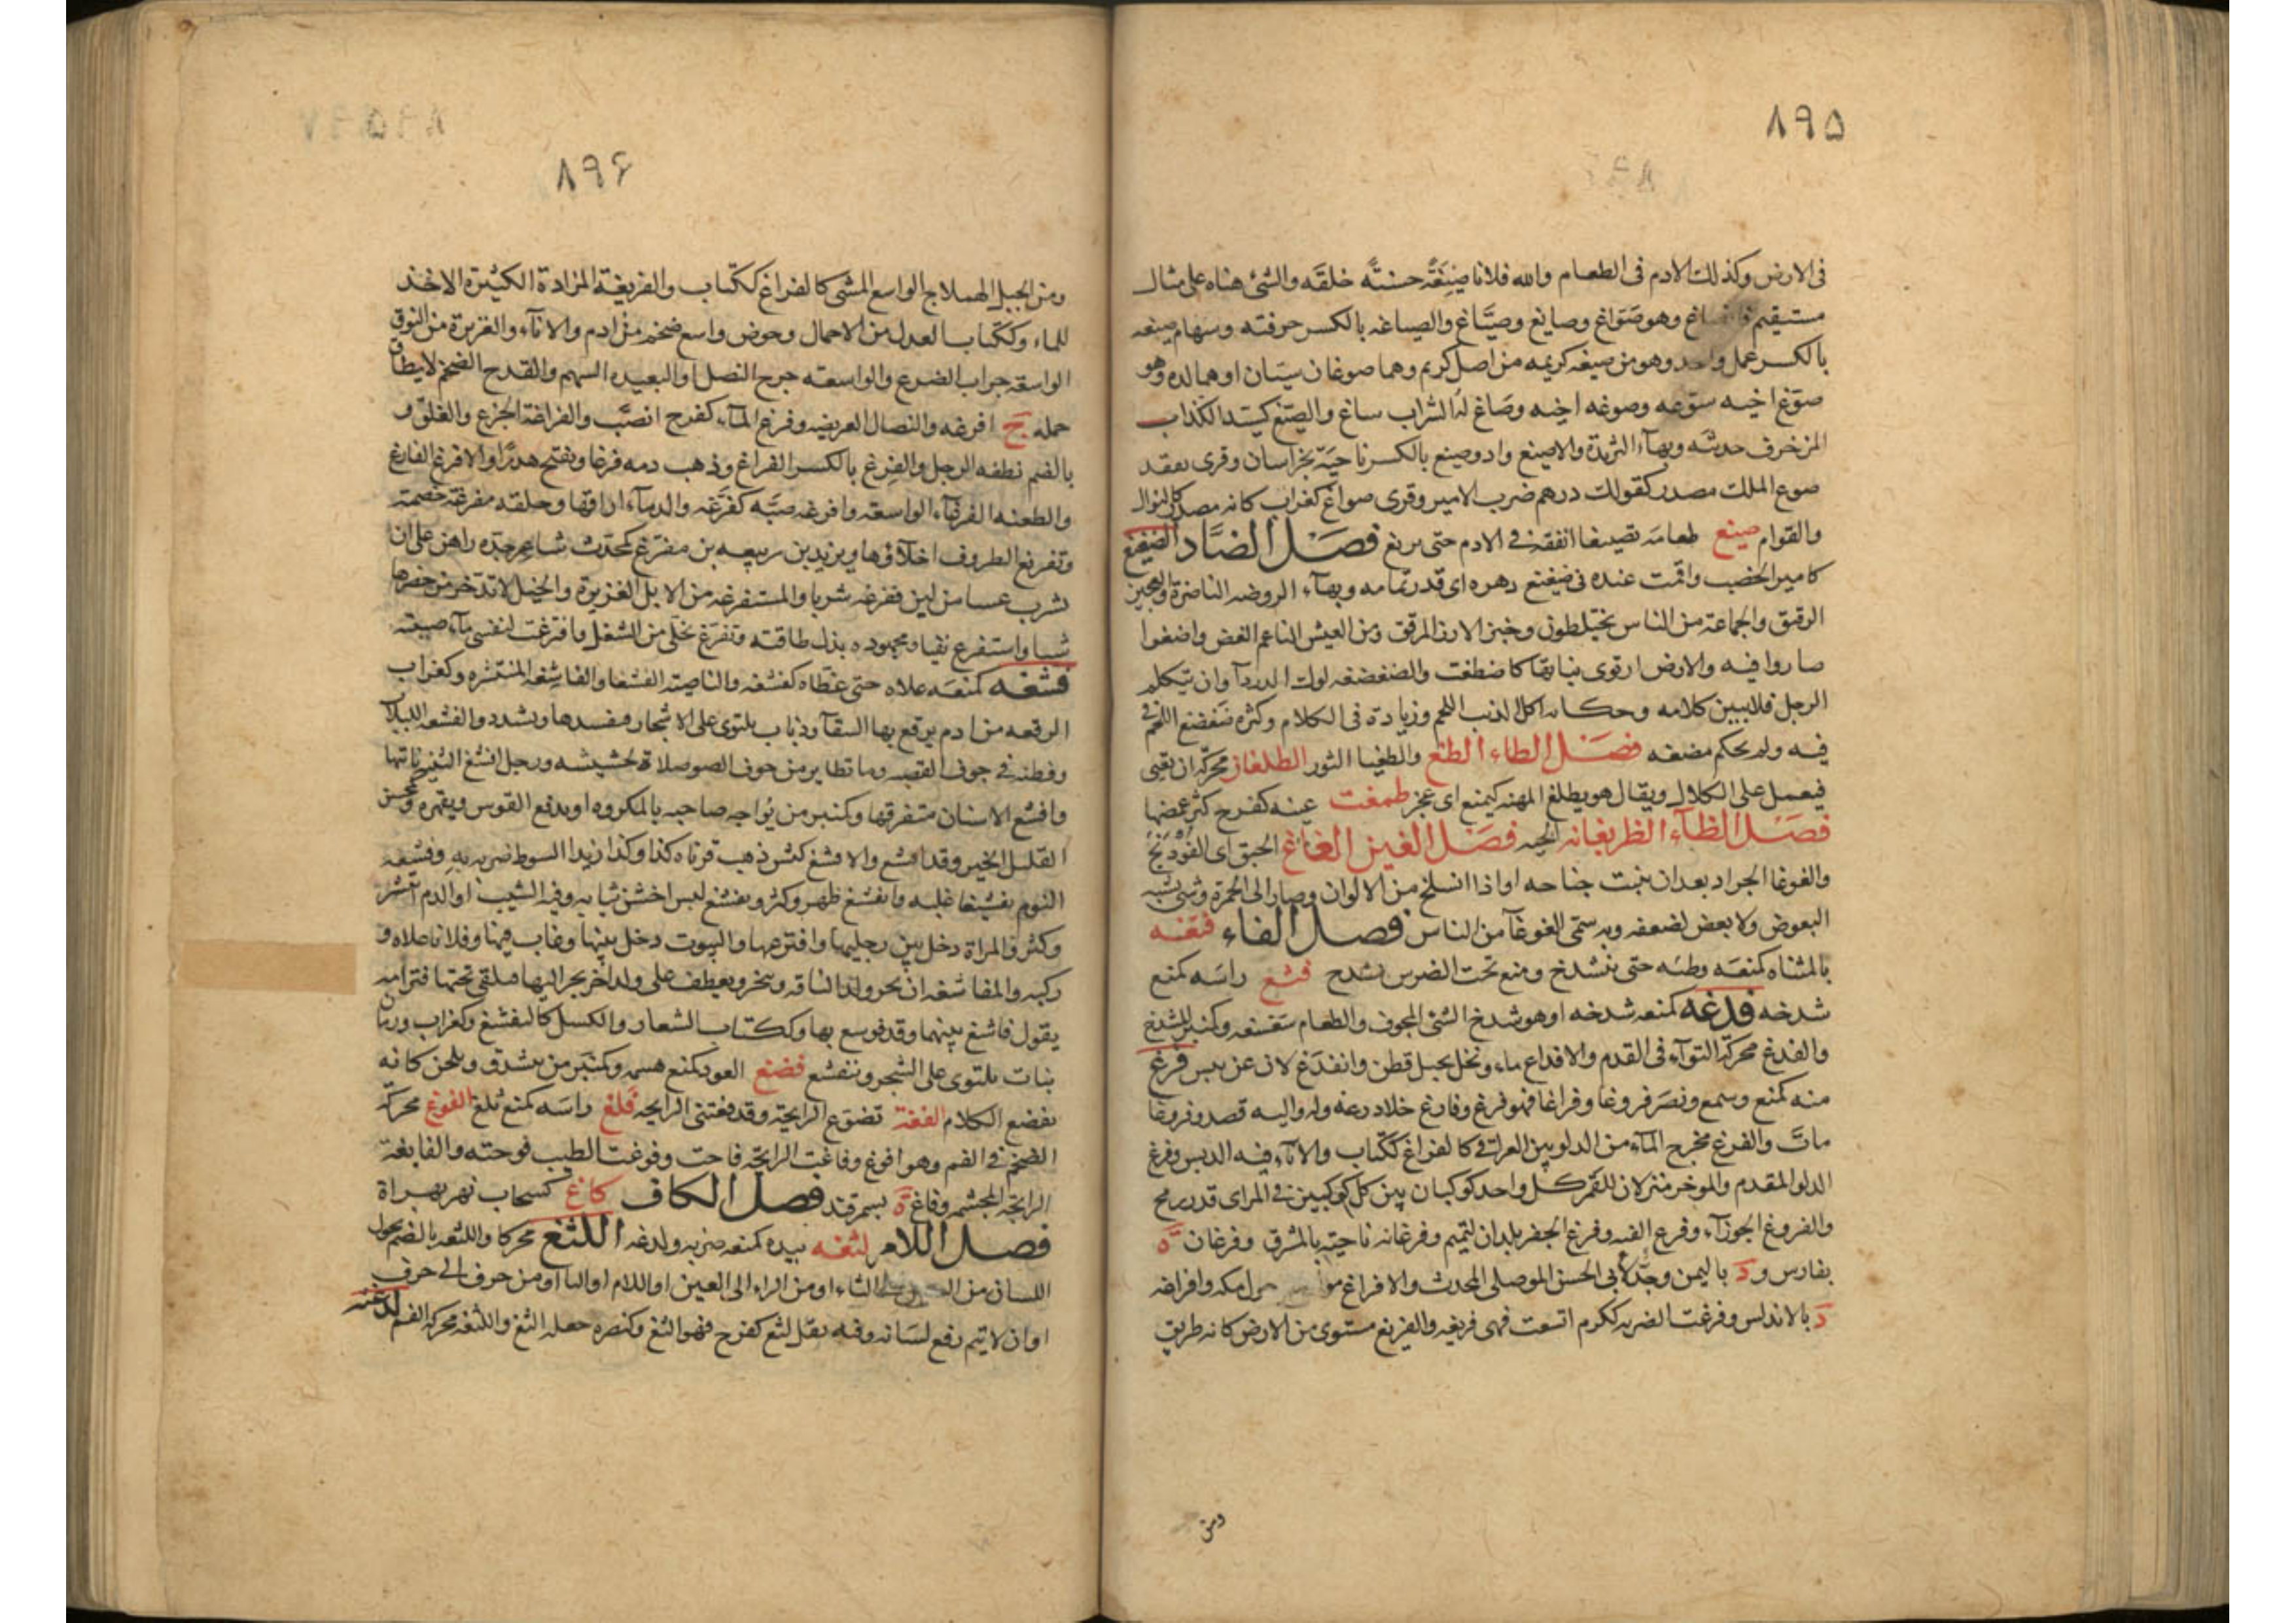 ۸۹۵
فى الارض وكذلك الادم فى الطعام والله فلانا صِيْغَةً حسنةً خلقه والشئ هيّاه على مثال
مستقيم فانصاغ وهو صَوّاغ وصايغ وصيّاغ والصياغه بالكسر حرفته وسهام صيغه
بالكسر عمل واحد وهو من صيغه كريمه من اصل كريم وهما صوغان سيّان او هما لده وهو
صوّغ اخيه سوّغه وصوغه اخيه وصَاغ له الشراب ساغ والصيّغ كسيّد الكذاب
المزخرف حديثه وبهآء الثريدة والاصيغ واد وصيغ بالكسر ناحيَة بخراسان وقرى نفقد
صوع الملك مصدر كقولك درهم ضرب الامير وقرى صواغ كغراب كانه مصدر كالنوال
والقوام صيغ طعامَه تصييغا انفقه فى الادم حتى يريغ فصل الضَّاد الضغيغ
كامير الخصب واقمت عنده فى ضغيغ دهره اى قدر تمامه وبهآء الروضه الناضرة والعجين
الرقيق والجماعة من الناس يختلطون وخبز الارز المرقق ومن العيش الناعم الغض واضغوا
صاروا فيه والارض ارتوى نباتها كاضطغت والضغضغه لوك الدردآ وان يتكلم
الرجل فلا يبين كلامه وحكايه اكل الذئب اللحم وزيادة فى الكلام وكثره ضغضغ اللحم فى
فيه ولم يحكم مضغه فصل الطاء الطغ والطغيا الثور الطلغان محركه ان يعيى
فيعمل على الكلال ويقال هو يطلغ المهنه كيمنع اى عجز طمغت عينه كفرح كثر غمضها
فصل الظآء الظربغانه الحيه فصل الغين الغاغ الحبق اى الفُوْدَنَج
والغوغا الجراد بعد ان ينبت جناحه او اذا انسلخ من الالوان وصار الى الحمرة وشئ يشبه
البعوض ولا يعض لضعفه وبه سمى الغوغآ من الناس فصل الفاء فتغه
بالمثناه كمنعَه وطئه حتى ينشدخ ومنع تحت الضرس يشدح فثغ راسَه كمنع
شدخه فدغه كمنعه شدخه او هو شدخ الشئ المجوف والطعام سغسغه وكمنبر المشدخ
والفدغ محركه التوآء فى القدم والافداغ ماء ونخل بجبل قطن وانفدَغ لان عن يبس فرغ
منه كمنع وسمع ونصَر فروغا وفراغا فهو فرغ وفارغ خلا ذرعه وله واليه قصد وفروغا
ماتَ والفرغ مخرج المآء من الدلو بين العراقى كالفراغ ككتاب والاناء فيه الدبس وفرغ
الدلو المقدم والموخر منزلان للقمر كل واحد كوكبان بين كل كوكبين فى المراى قدر رمح
والفروغ الجوزآء وفرغ القبه وفرغ الجفر بلدان لتميم وفرغانه ناحيَة بالمشرق وفرغان ة
بفارس ود باليمن وجدّ لابى الحسن الموصلى المحدث والافراغ مواضع حول مكه وافراغه
د بالاندلس وفرغت الضربه ككرم اتسعت فهى فريغه والفريغ مستوى من الارض كانه طريق
ومن
۸۹۶
ومن الخيل الهملاج الواسع المشى كالفراغ ككتاب والفريغة المزادة الكثيرة الاخذ
للماء وككتاب العدل من الاحمال وحوض واسع ضخم من ادم والانآء والغزيرة من النوق
الواسعة جراب الضرع والواسعه جرح النصل او البعيده السهم والقدح الضخم لا يطاق
حمله ج افرغه والنصال العريضه وفرغ المآء كفرح انصبّ والفراغة الجزع والقلق و
بالضم نطفه الرجل والفِرغ بالكسر الفراغ وذهب دمه فرغا ويفتح هدرًا والافرغ الفارغ
والطعنه الفرغآء الواسعه وافرغه صبّه كفَرّغه والدمآء اراقها وحلقه مفرغة مصمته
وتفريغ الظروف اخلاؤها ويزيد بن ربيعه بن مفرّغ كمحدث شاعر جدّه راهن على ان
يشرب عسا من لبن ففرغه شربا والمستفرغه من الابل الغزيرة والخيل لا تدّخر من حضرها
شيا واستفرغ تقيا ومجهوده بذل طاقته وتفرّغ تخلى من الشغل وافترغت لنفسى مآء صببته
فشغه كمنعَه علاه حتى غطاه كفشغه والناصيَة الفشغا والفاشغه المنتشره وكغراب
الرقعه من ادم يرقع بها السقآ ونبات يلتوى على الاشجار فيفسدها ويشدد والفشغه اللبلاب
وقطنه فى جوف القصبه وما تطاير من جوف الصوصلاة لحشيشه ورجل افشغ الثنيه ناتيها
وافشغ الاسنان متفرقها وكمنبر من يُواجه صاحبه بالمكروه او يقدع الفرس ويقهره ومحسن
القليل الخير وقد افشغ والافشغ كبش ذهب قرناه كذا وكذا زيدا السوط ضربه به وفشغه
النوم تفشيغا غلبه وتفشغ ظهر وكثر وتفشغ لبس اخشن ثيابه وفيه الشيب او الدم انتشر
وكثر والمراة دخل بين رجليها وافترعها والبيوت دخل بينها وغاب فيها وفلانا علاه و
ركبه والمفاشغه ان يجر ولد الناقه وينحر ويعطف على ولد اخر يجر اليها فيلقى تحتها فترامه
يقول فاشغ بينهما وقد فوشغ بها وككتاب الشغار والكسل كالتفشغ وكغراب ورمان
نبات يلتوى على الشجر وتفشغ فضغ العود كمنع هشمه وكمنبر من يتشدق ويلحن كانه
يفضغ الكلام الفغة تضوّع الرايحة وقد فغتنى الرايحه فلغ راسَه كمنع ثلغ الفوغ محركه
الضخم فى الفم وهو افوغ وفاغت الرايحة فاحت وفوغت الطيب فوحته والفايغة
الرايحة المجشمه وفاغ ة بسمرقند فصل الكاف كاغ كسحاب نهر بهراة
فصل اللام لتغه بيده كمنعه ضربه ولدغه اللثغ محركا واللثغه بالضم تحول
اللسان من السين الى الثاء او من الراء الى الغين او اللام او اليا او من حرف الى حرف
او ان لا يتم رفع لسَانه وفيه ثقل لثغ كفرح فهو الثغ وكنصره جعله الثغ واللثغه محركه الفم لدغته